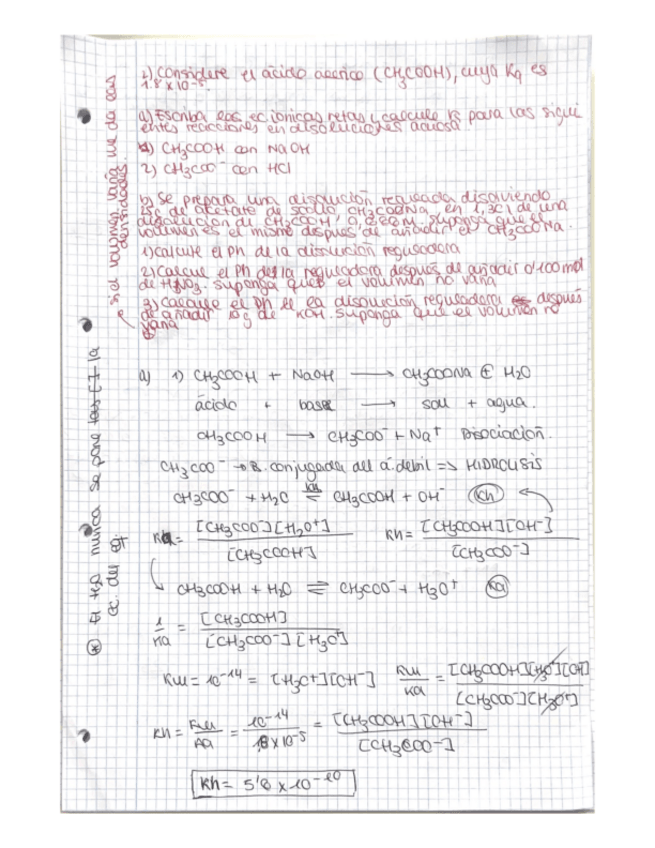 2) Considere el ácido acético (CH3COOH), cuya Ka es
1.8 x 10-5.
a) Escriba las ec iónicas netas y calcule K para las sigui
entes reacciones en disoluciones acuosa
1) CH3COOH con NaOH
2) CH3COO- con HCl
b) Se prepara una disolución reguladora disolviendo
g de acetato de sodio CH3COONa, en 1, de una
disolución de CH3COOH M. suponga que el
volumen es el mismo después de añadir el CH3COONa.
1) calcule el PH de la disolución reguladora
2) Calcule el PH de la reguladora después de añadir 0'100 mol
de HNO3. suponga que el volumen no varía
3) Calcule el PH de la disolución reguladora después
de añadir g de KOH. suponga que el volumen no
varía
si el volumen varía me da las
densidades.
a) 1) CH3COOH + NaOH → CH3COONa + H2O
ácido + base → sal + agua.
CH3COOH → CH3COO- + Na+ Disociación.
CH3COO- → B. conjugada del á. débil => HIDROLISIS
CH3COO- + H2O ⇌ CH3COOH + OH- Kh
Ka = [CH3COO-][H3O+] / [CH3COOH] Kh = [CH3COOH][OH-] / [CH3COO-]
CH3COOH + H2O ⇌ CH3COO- + H3O+ Ka
1/Ka = [CH3COOH] / [CH3COO-][H3O+]
Kw = 10-14 = [H3O+][OH-] Kw/Ka = [CH3COOH][H3O+][OH-] / [CH3COO-][H3O+]
Kh = Kw/Ka = 10-14 / 1'8 x 10-5 = [CH3COOH][OH-] / [CH3COO-]
Kh = 5'8 x 10-10
* El H2O nunca se pone la
ec. del